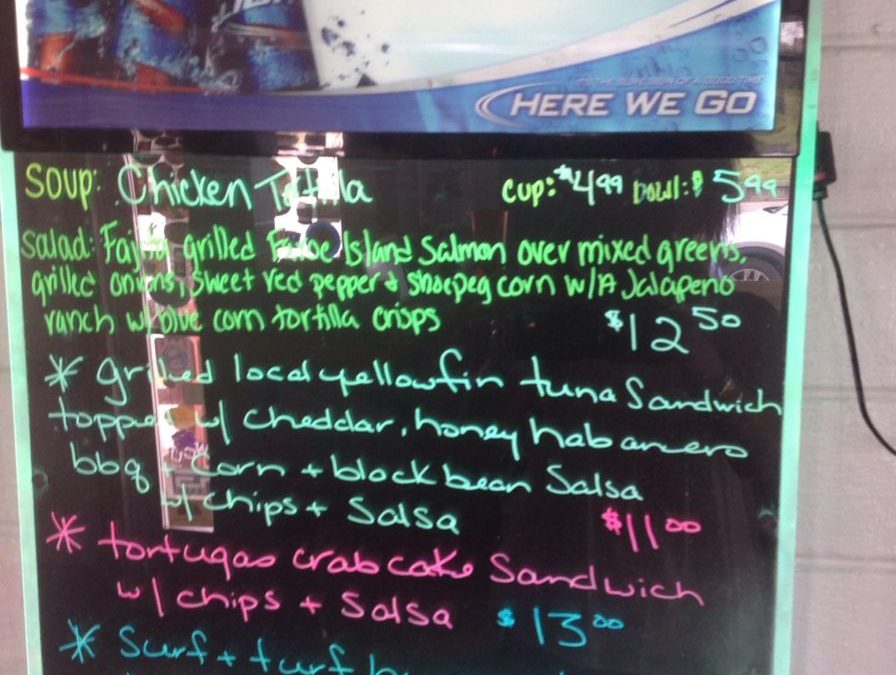 HERE WE GO
Soup: Chicken Tortilla cup: $4.99 bowl: $5.99
Salad: Fajita grilled Faroe Island Salmon over mixed greens,
grilled onions, sweet red pepper & shoepeg corn w/A Jalapeno
ranch w/ blue corn tortilla crisps $12.50
* grilled local yellowfin tuna Sandwich
topped w/ cheddar, honey habanero
bbq + Corn + black bean Salsa
w/ chips + Salsa $11.00
* tortugas crab cake Sandwich
w/ chips + Salsa $13.00
* Surf + turf